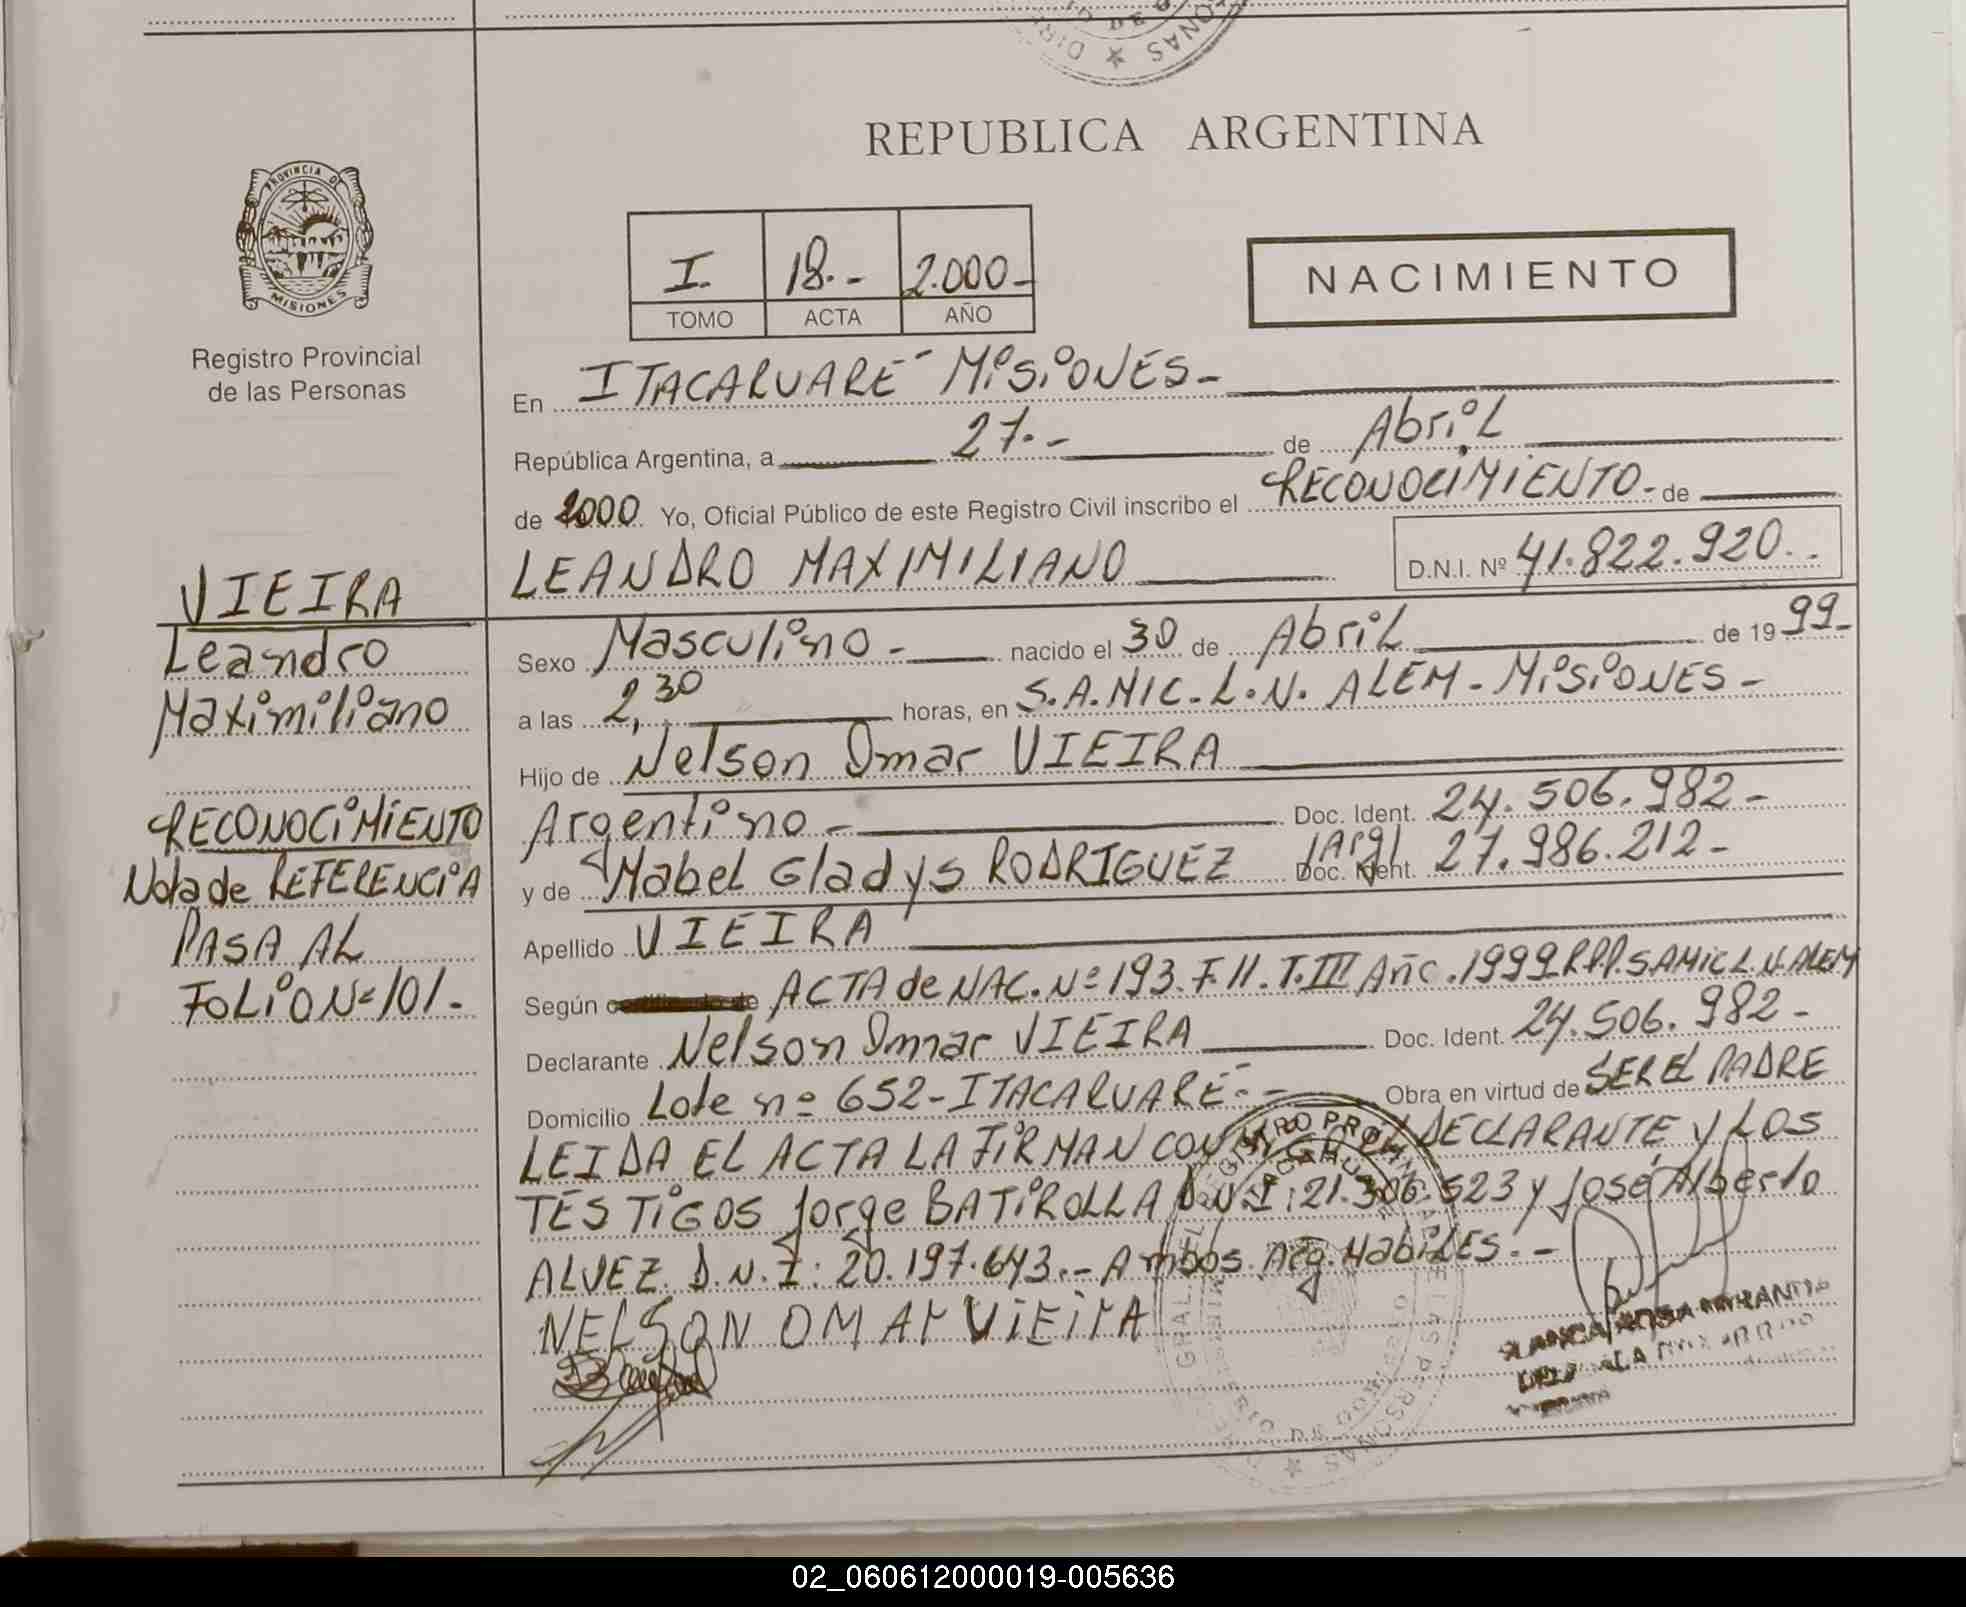 REPUBLICA ARGENTINA
PROVINCIA DE
MISIONES
Registro Provincial
de las Personas
I. 18.- 2.000-
TOMO ACTA AÑO
NACIMIENTO
En ITACARUARE MiSiONES-
República Argentina, a 27.- de AbriL
de 2000 Yo, Oficial Público de este Registro Civil inscribo el RECONOCIMIENTO- de
LEANDRO MAXIMILIANO D.N.I. Nº 41.822.920..
VIEIRA
Leandro
Maximiliano
RECONOCiMiENTO
Nota de REFERENCiA
PASA AL
FOLiO Nº 101-
Sexo Masculino- nacido el 30 de AbriL de 1999-
a las 2,30 horas, en S.A.MIC.L.N. ALEM-MiSiONES-
Hijo de Nelson Omar VIEIRA
Argentino- Doc. Ident. 24.506.982-
y de Mabel Gladys RODRIGUEZ (Arg) Doc. Ident. 27.986.212-
Apellido VIEIRA
Según ACTA de NAC. Nº 193. F.11. T.III Año. 1999 R.P.P. SAMIC L.N. ALEM
Declarante Nelson Omar VIEIRA Doc. Ident. 24.506.982-
Domicilio Lote nº 652-ITACARUARE.- Obra en virtud de SER EL PADRE
LEIDA EL ACTA LA FiRMAN CONMIGO, DECLARANTE y LOS
TESTiGOS Jorge BATIROLLA D.N.I: 21.306.523 y José Alberto
ALVEZ. D.N.I: 20.197.643.- Ambos. Arg. HabiLES.-
NELSON OMAr ViEirA
02_060612000019-005636